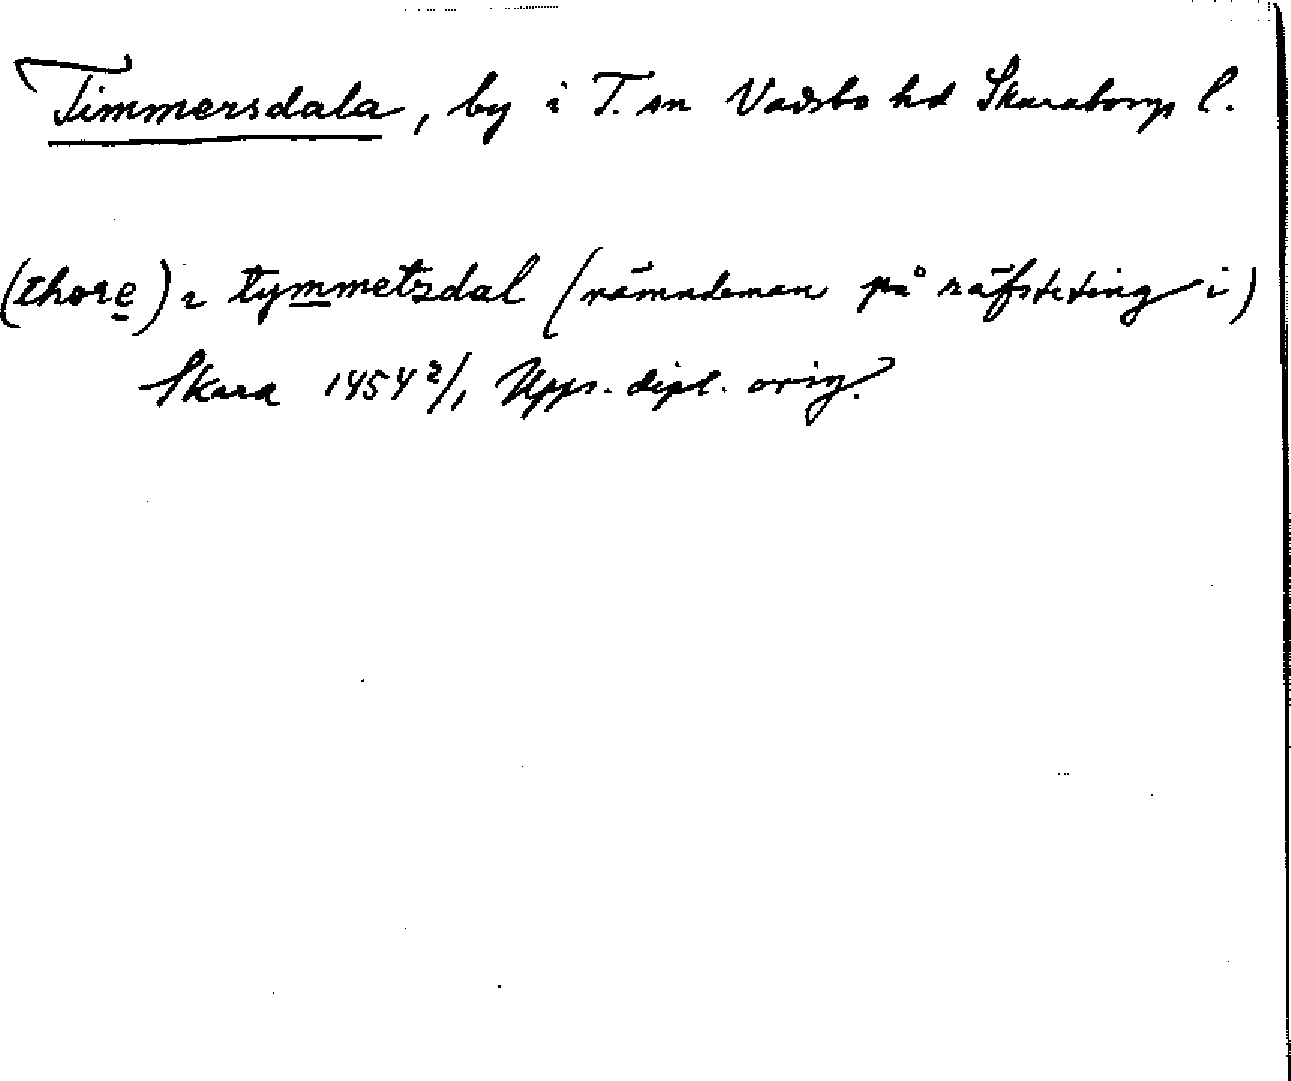 Timmersdala, by i T. sn Vadsbo hd Skaraborgs l.
(thore) i tymmetzdal (nämndeman på räfsteting i)
Skara 1454 2/1 Upps. dipl. orig.